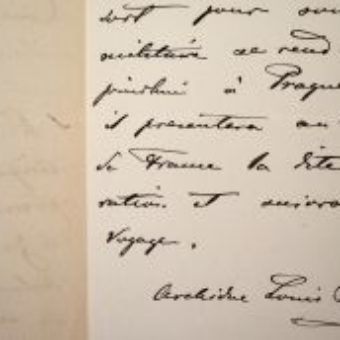 sort pour
militaire se rend
à Prague
il présentera au
de France la dite
ration et suivra
voyage.
Archiduc Louis